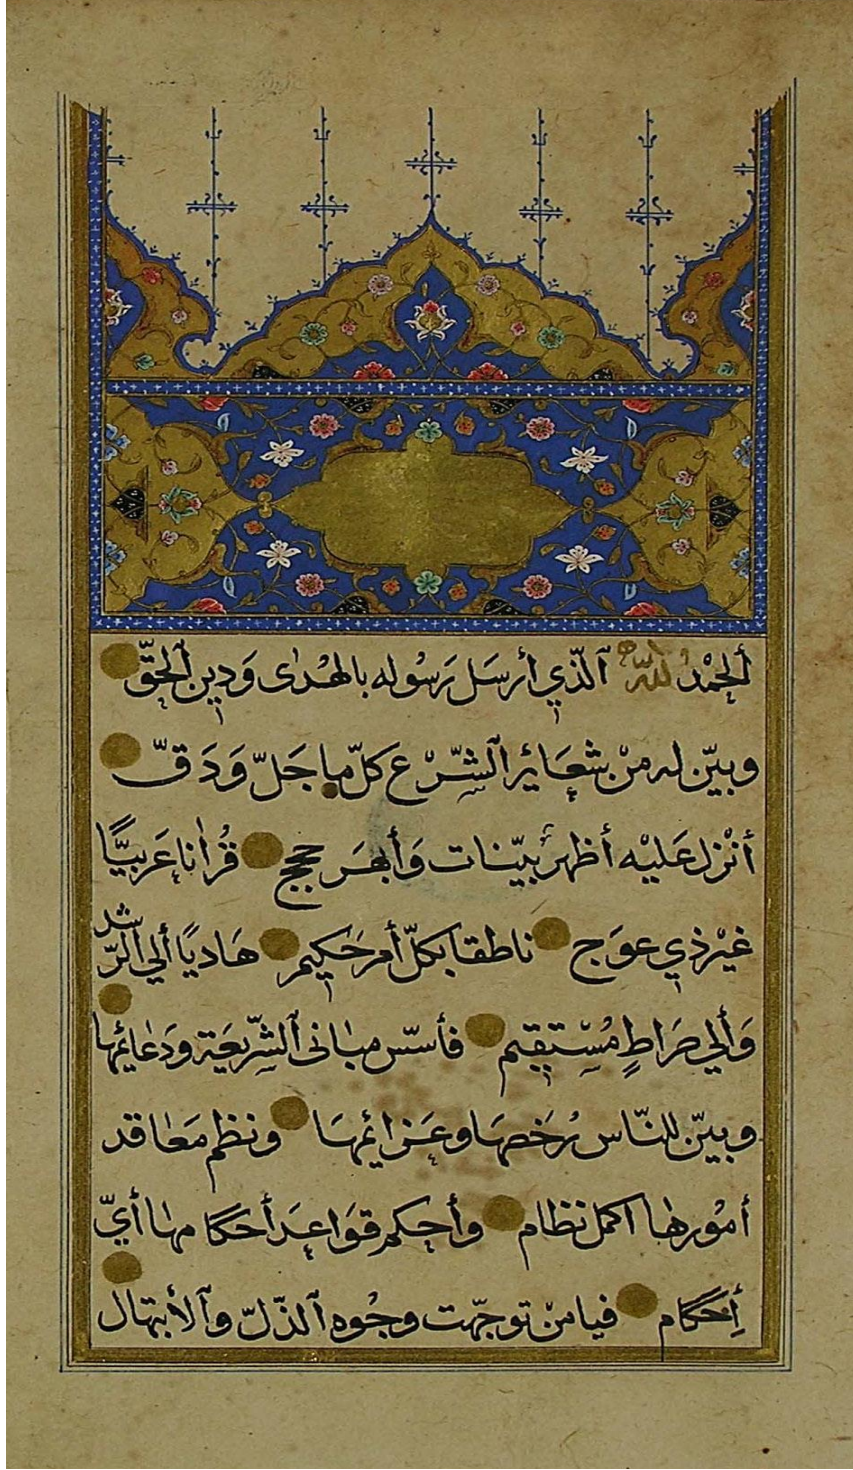 ألحمْدُ لله ٱلّذي أرسَل رَسُوله بالهُدٰى وَدِين ٱلحَقّ
وبيّن له منْ شعَائر ٱلشّرْع كلّ ما جَلّ وَدَقّ
أنْزل عَليْه أظهرَ بيّنات وَأبهَر حجج قُرأنا عَربيًّا
غيْر ذي عوَج ناطقا بكلّ أمر حَكيم هَاديًا ألي ٱلرّشد
وَألي صرَاطٍ مُسْتقيم فأسّس مبانى ٱلشّريعَة ودَعائمها
وبيّن للنّاس رُخصهَا وعَزائمهَا ونظم مَعاقد
أموْرها اكمل نظام وأحكم قوَاعدَ أحكامها أيّ
أِحكَام فيا منْ توجّهت وجُوه ٱلذّلّ وٱلأبتهال